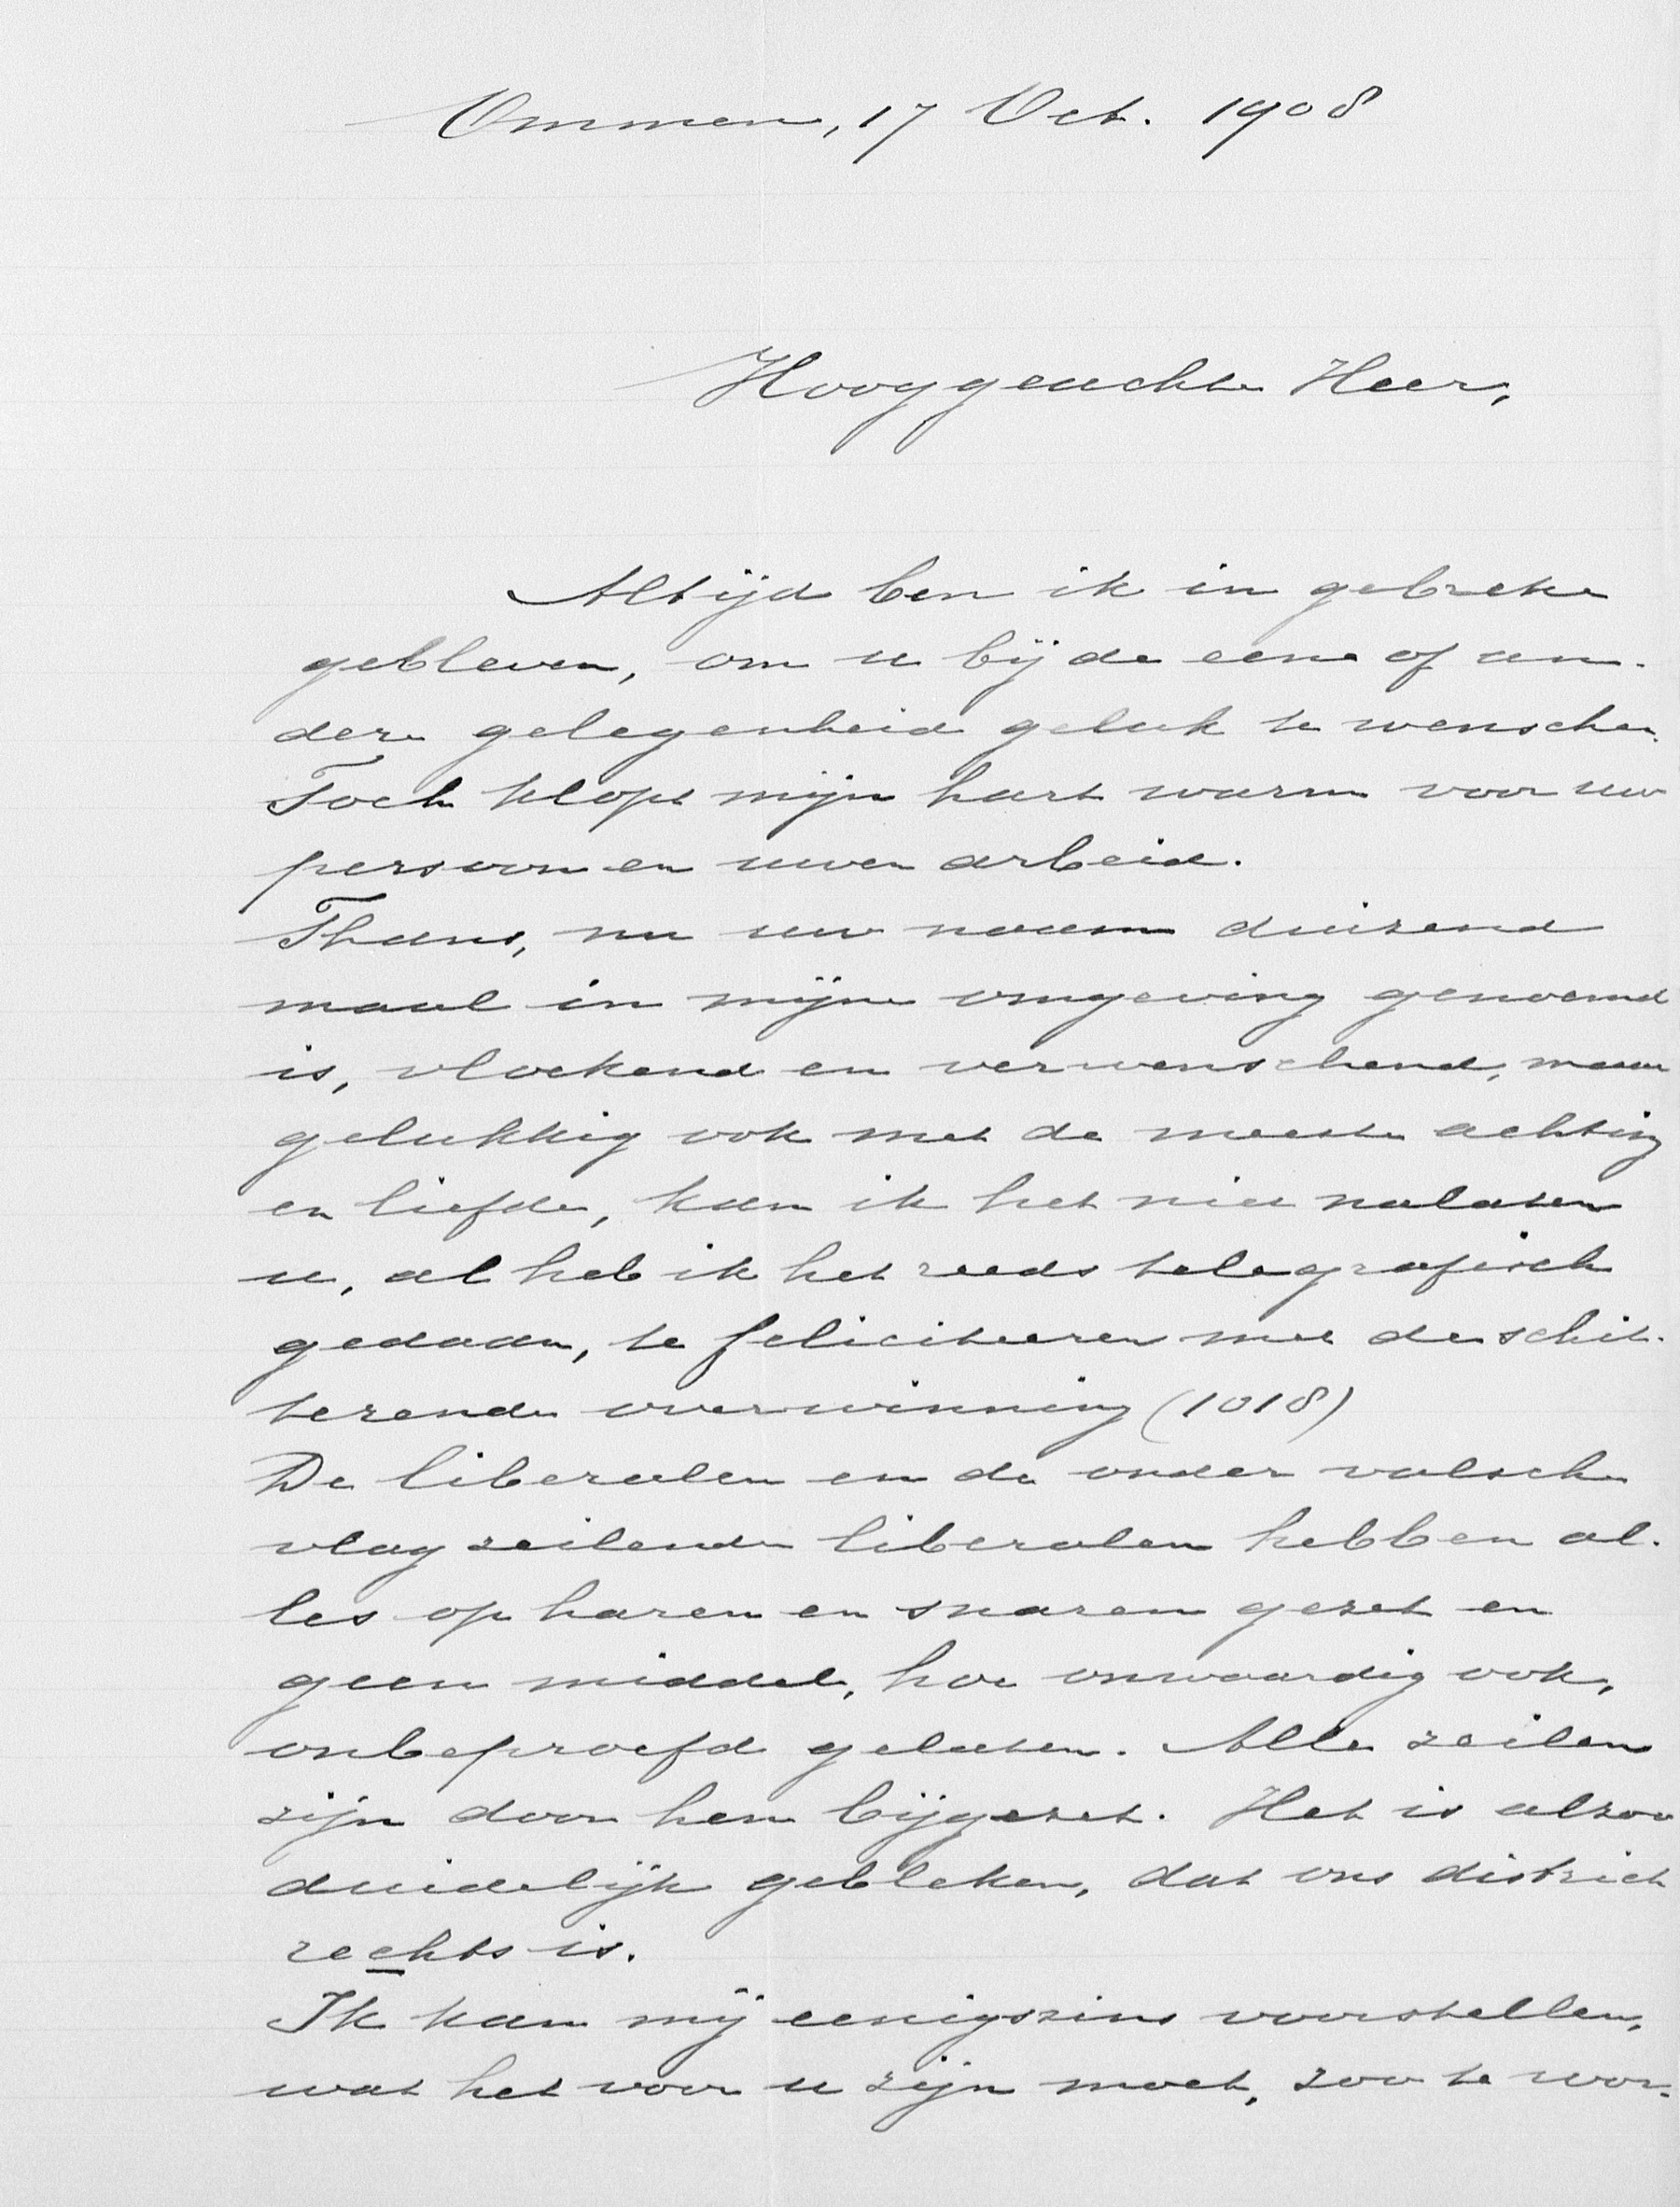 Ommen, 17 Oct. 1908
Hooggeachte Heer,
Altijd ben ik in gebreke
gebleven, om u bij de eene of an-
dere gelegenheid geluk te wenschen.
Toch klopt mijn hart warm voor uw
persoon en uwen arbeid.
Thans, nu uw naam duizend
maal in mijne omgeving genoemd
is, vloekend en verwenschend, maar
gelukkig ook met de meeste achting
en liefde, kan ik het niet nalaten
u, al heb ik het reeds telegrafisch
gedaan, te feliciteeren met de schit-
terende overwinning (1018)
De liberalen en de onder valsche
vlag zeilende liberalen hebben al-
les op haren en snaren gezet en
geen middel, hoe onwaardig ook,
onbeproefd gelaten. Alle zeilen
zijn door hen bijgezet. Het is alzoo
duidelijk gebleken, dat ons district
rechts is.
Ik kan mij eenigszins voorstellen,
wat het voor u zijn moet, zoo te wor-